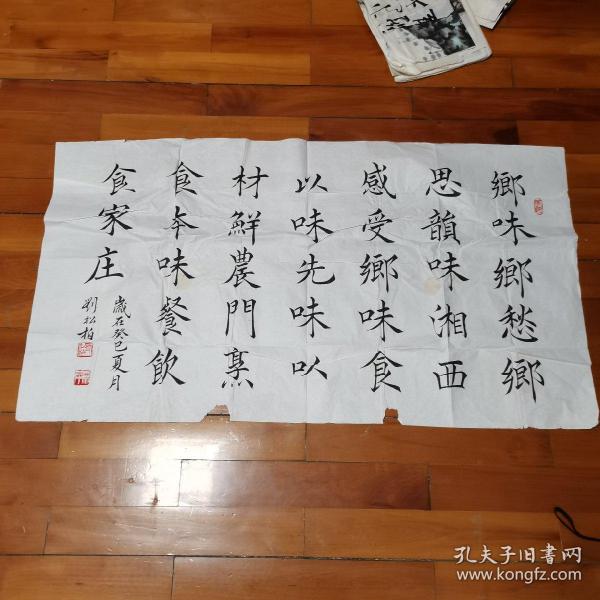 鄉味鄉愁鄉
思韻味湘西
感受鄉味食
以味先味以
材鮮農門烹
食本味餐飲
食家庄
歲在癸巳夏月
劉松柏
孔夫子旧書网
www.kongfz.com